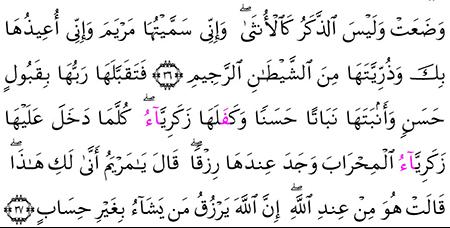 وَضَعَتْ وَلَيْسَ ٱلذَّكَرُ كَٱلْأُنثَىٰۖ وَإِنِّي سَمَّيْتُهَا مَرْيَمَ وَإِنِّي أُعِيذُهَا
بِكَ وَذُرِّيَّتَهَا مِنَ ٱلشَّيْطَـٰنِ ٱلرَّجِيمِ ﴿٣٦﴾ فَتَقَبَّلَهَا رَبُّهَا بِقَبُولٍ
حَسَنٍ وَأَنۢبَتَهَا نَبَاتًا حَسَنًا وَكَفَلَهَا زَكَرِيَّآءُۖ كُلَّمَا دَخَلَ عَلَيْهَا
زَكَرِيَّآءُ ٱلْمِحْرَابَ وَجَدَ عِندَهَا رِزْقًاۖ قَالَ يَـٰمَرْيَمُ أَنَّىٰ لَكِ هَـٰذَاۖ
قَالَتْ هُوَ مِنْ عِندِ ٱللَّهِۖ إِنَّ ٱللَّهَ يَرْزُقُ مَن يَشَآءُ بِغَيْرِ حِسَابٍ ﴿٣٧﴾